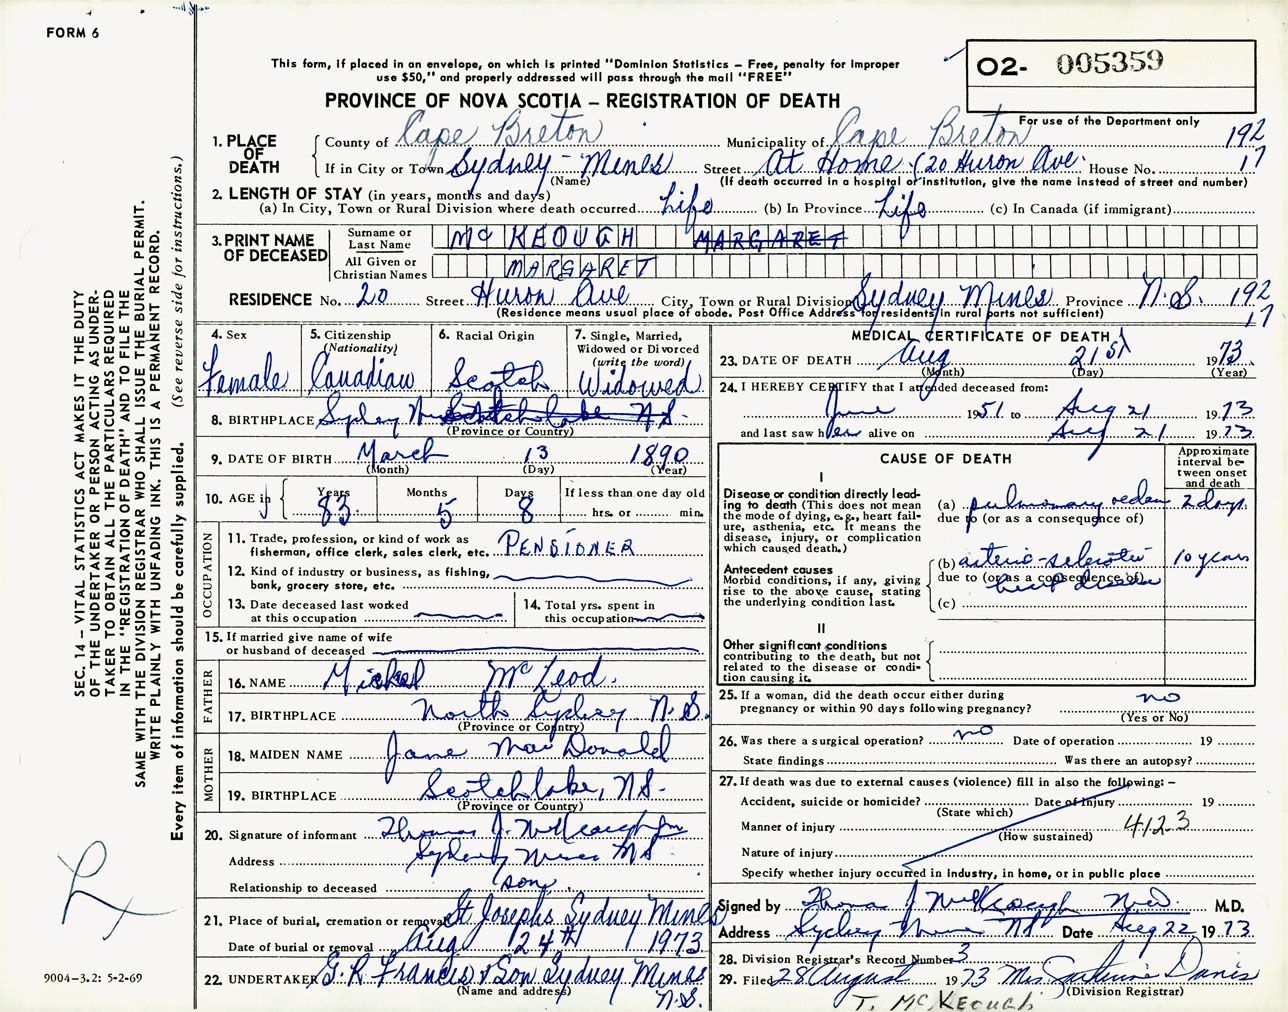 FORM 6
This form, if placed in an envelope, on which is printed "Dominion Statistics – Free, penalty for improper
use $50," and properly addressed will pass through the mail "FREE"
O2- 005359
For use of the Department only
PROVINCE OF NOVA SCOTIA – REGISTRATION OF DEATH
1. PLACE OF DEATH
County of Cape Breton Municipality of Cape Breton 192
If in City or Town Sydney-Mines Street At Home (20 Huron Ave. House No. 17
(Name) (If death occurred in a hospital or institution, give the name instead of street and number)
2. LENGTH OF STAY (in years, months and days)
(a) In City, Town or Rural Division where death occurred Life (b) In Province Life (c) In Canada (if immigrant)
3. PRINT NAME OF DECEASED
Surname or Last Name McKEOUGH MARGARET
All Given or Christian Names MARGARET
RESIDENCE No. 20 Street Huron Ave City, Town or Rural Division Sydney Mines Province N.S. 192
(Residence means usual place of abode. Post Office Address for residents in rural parts not sufficient) 17
4. Sex Female
5. Citizenship (Nationality) Canadian
6. Racial Origin Scotch
7. Single, Married, Widowed or Divorced (write the word) Widowed
8. BIRTHPLACE Sydney N Scotch lake N S.
(Province or Country)
9. DATE OF BIRTH March 13 1890
(Month) (Day) (Year)
10. AGE in Years 83 Months 5 Days 8 If less than one day old hrs. or min.
OCCUPATION
11. Trade, profession, or kind of work as fisherman, office clerk, sales clerk, etc. PENSIONER
12. Kind of industry or business, as fishing, bank, grocery store, etc.
13. Date deceased last worked at this occupation
14. Total yrs. spent in this occupation
15. If married give name of wife or husband of deceased
FATHER
16. NAME Michael McLeod.
17. BIRTHPLACE North Sydney N.S.
(Province or Country)
MOTHER
18. MAIDEN NAME Jane MacDonald
19. BIRTHPLACE Scotchlake, NS-
(Province or Country)
20. Signature of informant Thomas J. McKeough
Address Sydney Mines NS
Relationship to deceased (son)
21. Place of burial, cremation or removal St Josephs Sydney Mines
Date of burial or removal Aug 24th 1973
22. UNDERTAKER G.R Francis & Son Sydney Mines
(Name and address) N.S.
MEDICAL CERTIFICATE OF DEATH
23. DATE OF DEATH Aug 21st 1973
(Month) (Day) (Year)
24. I HEREBY CERTIFY that I attended deceased from:
June 1951 to Aug 21 1973
and last saw her alive on Aug 21 1973
CAUSE OF DEATH
Approximate interval between onset and death
I
Disease or condition directly leading to death (This does not mean the mode of dying, e.g., heart failure, asthenia, etc. It means the disease, injury, or complication which caused death.)
(a) pulmonary oedema 2 days
due to (or as a consequence of)
Antecedent causes
Morbid conditions, if any, giving rise to the above cause, stating the underlying condition last.
(b) arterio-sclerotic 10 years
due to (or as a consequence of) heart disease
(c)
II
Other significant conditions
contributing to the death, but not related to the disease or condition causing it.
25. If a woman, did the death occur either during pregnancy or within 90 days following pregnancy? no
(Yes or No)
26. Was there a surgical operation? no Date of operation 19
State findings Was there an autopsy?
27. If death was due to external causes (violence) fill in also the following: –
Accident, suicide or homicide? Date of Injury 19
(State which)
Manner of injury 412-3
(How sustained)
Nature of injury
Specify whether injury occurred in Industry, in home, or in public place
Signed by Thomas J McKeough M.D. M.D.
Address Sydney Mines NS Date Aug 22 1973
28. Division Registrar's Record Number 3
29. Filed 28 August 1973 Mrs Davis
(Division Registrar)
T. McKEOUGH
SEC. 14 – VITAL STATISTICS ACT MAKES IT THE DUTY
OF THE UNDERTAKER OR PERSON ACTING AS UNDER-
TAKER TO OBTAIN ALL THE PARTICULARS REQUIRED
IN THE "REGISTRATION OF DEATH" AND TO FILE THE
SAME WITH THE DIVISION REGISTRAR WHO SHALL ISSUE THE BURIAL PERMIT.
WRITE PLAINLY WITH UNFADING INK. THIS IS A PERMANENT RECORD.
Every item of information should be carefully supplied. (See reverse side for instructions.)
9004-3.2: 5-2-69